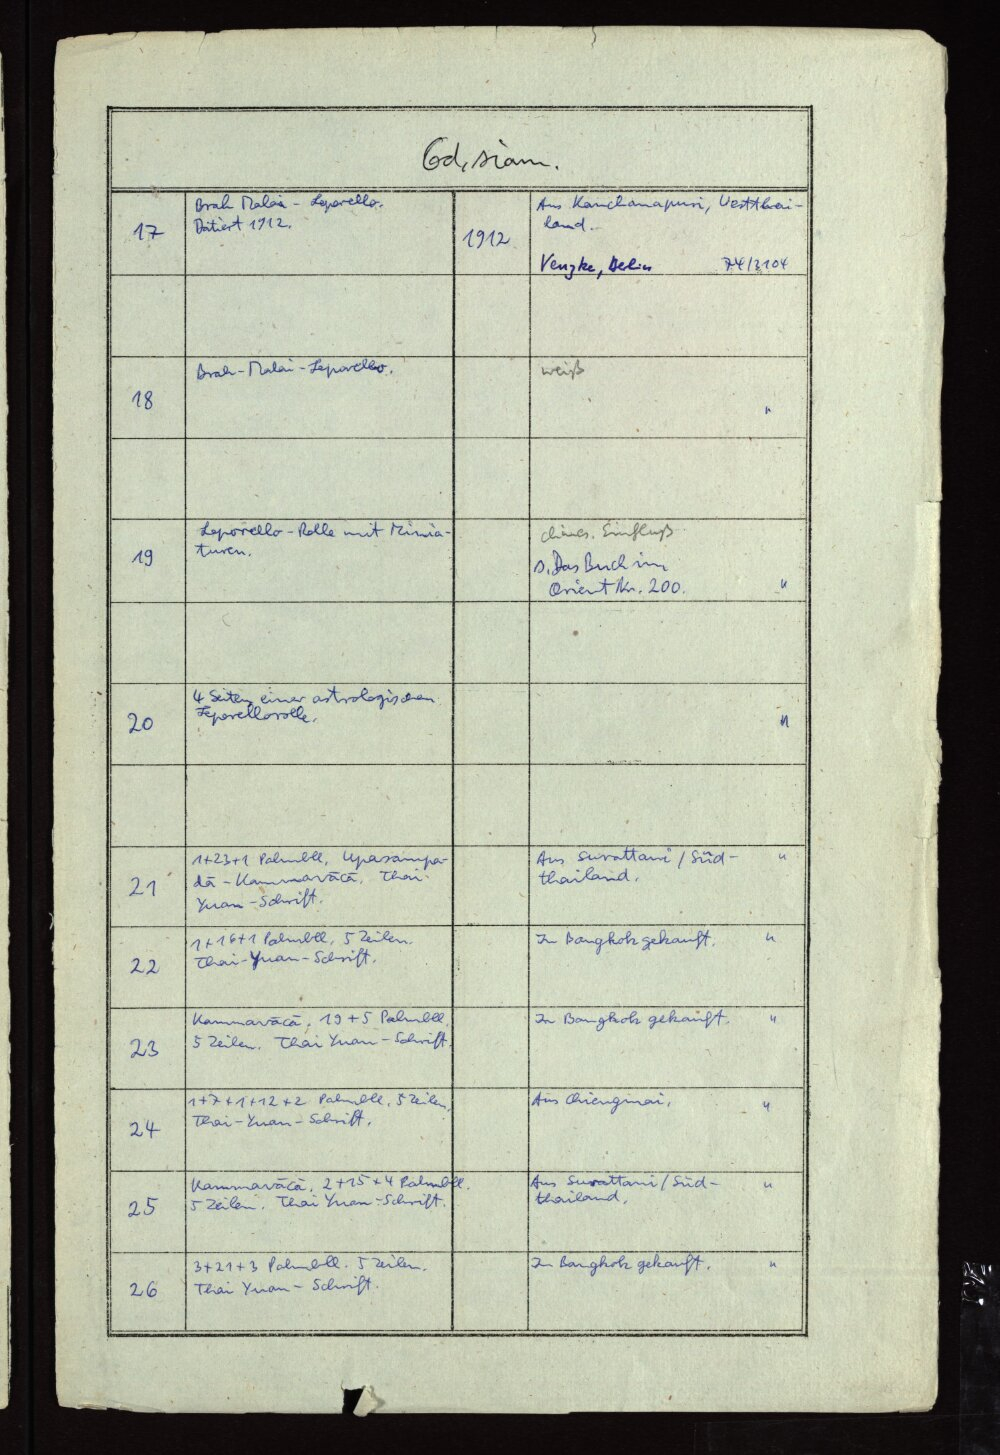 Cod. siam.
17
Brah Malai - Leporello.
Datiert 1912.
1912
Aus Kanchanapuri, Westthai-
land.
Venzke, Berlin 74/3104
18
Brah-Malai-Leporello.
weiß
"
19
Leporello-Rolle mit Minia-
turen.
chines. Einfluß
s. Das Buch im
Orient Nr. 200.
"
20
4 Seiten einer astrologischen
Leporellorolle.
"
21
1+23+1 Palmbll. Upasampa-
dā-Kammavācā. Thai-
Yuan-Schrift.
Aus Surattani / Süd-
thailand.
"
22
1+16+1 Palmbll. 5 Zeilen.
Thai-Yuan-Schrift.
In Bangkok gekauft.
"
23
Kammavācā. 19+5 Palmbll.
5 Zeilen. Thai Yuan-Schrift.
In Bangkok gekauft.
"
24
1+7+1+12+2 Palmbll. 5 Zeilen.
Thai-Yuan-Schrift.
Aus Chiengmai.
"
25
Kammavācā. 2+15+4 Palmbll.
5 Zeilen. Thai Yuan-Schrift.
Aus Surattani / Süd-
thailand.
"
26
3+21+3 Palmbll. 5 Zeilen.
Thai Yuan-Schrift.
In Bangkok gekauft.
"